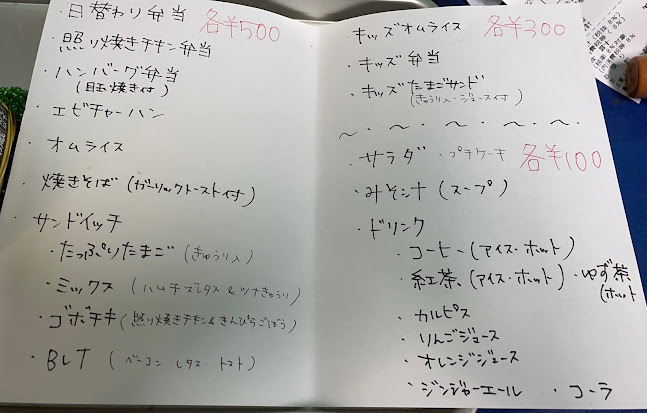 ・日替わり弁当 各¥500
・照り焼きチキン弁当
・ハンバーグ弁当
(目玉焼き付)
・エビチャーハン
・オムライス
・焼きそば(ガーリックトースト付)
・サンドイッチ
・たっぷりたまご(きゅうり入)
・ミックス(ハムチーズレタス&ツナきゅうり)
・ゴボチキ(照り焼きチキン&きんぴらごぼう)
・BLT(ベーコン・レタス・トマト)
・キッズオムライス 各¥300
・キッズ弁当
・キッズたまごサンド
(きゅうり入・ジュース付)
〜・〜・〜・〜・〜・〜
・サラダ ・プチケーキ 各¥100
・みそ汁(スープ)
・ドリンク
・コーヒー(アイス・ホット)
・紅茶(アイス・ホット)・ゆず茶
(ホット
・カルピス
・りんごジュース
・オレンジジュース
・ジンジャーエール ・コーラ